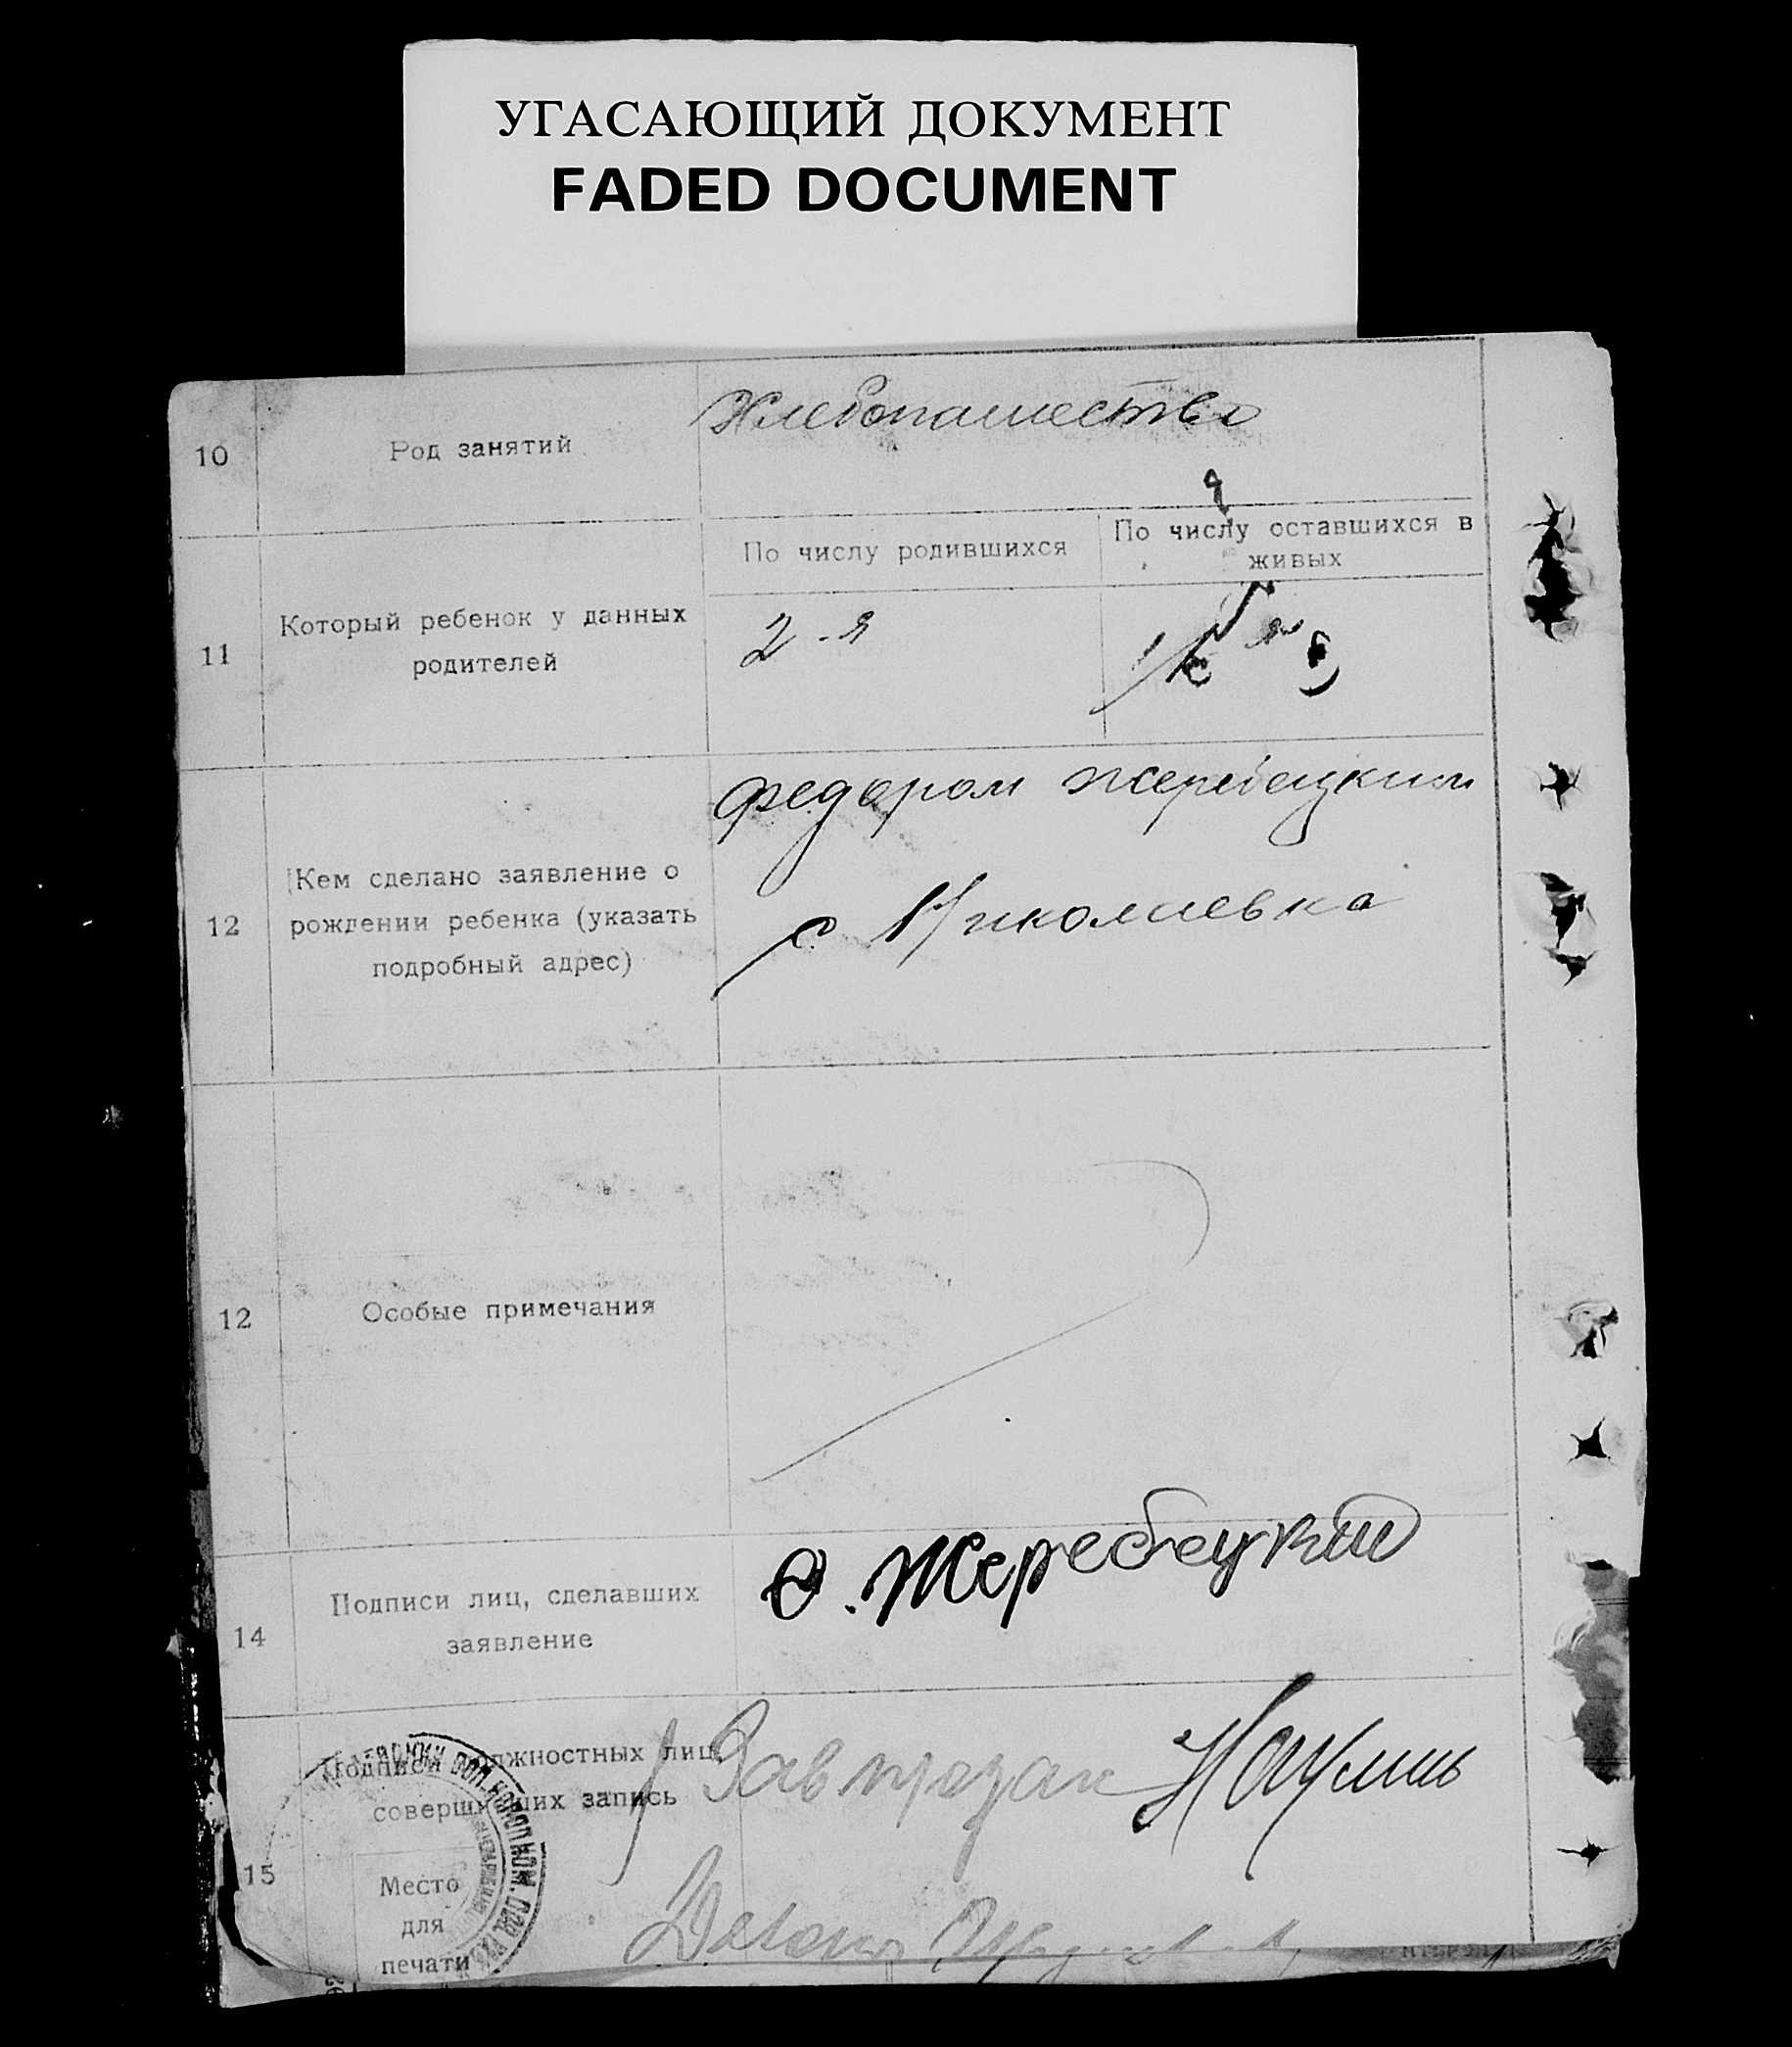 УГАСАЮЩИЙ ДОКУМЕНТ
FADED DOCUMENT
10
Род занятий
Хлебопашество
11
Который ребенок у данных
родителей
По числу родившихся
2-я
По числу оставшихся в
живых
12
Кем сделано заявление о
рождении ребенка (указать
подробный адрес)
Федором Жеребецким
с Николаевка
12
Особые примечания
14
Подписи лиц, сделавших
заявление
Ф. Жеребецкий
15
Подписи должностных лиц
совершивших запись
Завподзаг
Место
для
печати